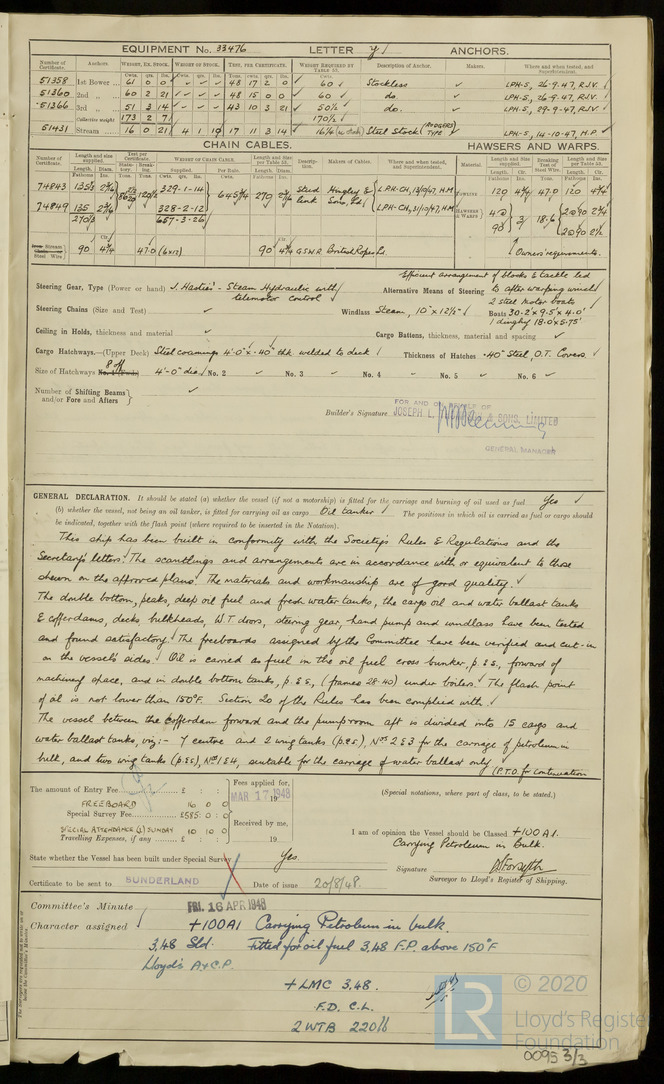 EQUIPMENT No. 33476 LETTER y ANCHORS.
Number of Certificate. Anchors WEIGHT, EX. STOCK. WEIGHT OF STOCK. TEST, PER CERTIFICATE. WEIGHT REQUIRED BY TABLE 53. Description of Anchor. Makers. Where and when tested, and Superintendent.
51358 1st Bower 61 0 0 48 17 2 0 60 Stockless LPH-S, 26.9.47, R.J.V.
51360 2nd " 60 2 21 48 15 0 0 60 do. LPH-S, 26.9.47, R.J.V.
51366 3rd " 51 3 14 43 10 3 21 50½ do. LPH-S, 29-9-47, R.J.V.
Collective weight 173 2 7 170½
51431 Stream 16 0 21 4 1 19 17 11 3 14 16¼ Steel Stock (ROGERS TYPE) LPH-S, 14-10-47, H.P.
CHAIN CABLES. HAWSERS AND WARPS.
74843 135½ 2 9/16 329-1-14 645¾ 270 2 9/16 Stud Link Hingley & Sons, Ltd LPH-CH, 13/10/47, H.M. 120 4¾ 47.0 120 4¾
74849 135 2 9/16 328-2-12 LPH-CH, 31/10/47, H.M.
270½ 657-3-26 18.6
Stream Steel Wire 90 4¾ 47.0 (6x12) 90 4¾ G.S.W.R. British Ropes Ltd. Owners requirements.
Steering Gear, Type (Power or hand) J. Hasties - Steam Hydraulic with telemotor control
Alternative Means of Steering Efficient arrangement of blocks & tackle led to after warping winch
Steering Chains (Size and Test) Windlass Steam, 10" x 12½" Boats 2 Steel Motor boats 30.2 x 9.5 x 4.0' 1 dinghy 18.0 x 5.75'
Ceiling in Holds, thickness and material Cargo Battens, thickness, material and spacing
Cargo Hatchways.—(Upper Deck) Steel coamings 4'-0" x .40" thk welded to deck Thickness of Hatches .40" Steel, O.T. Covers.
Size of Hatchways 8 off 4'-0" dia No. 2 No. 3 No. 4 No. 5 No. 6
Number of Shifting Beams and/or Fore and Afters
Builder's Signature FOR AND ON BEHALF OF
JOSEPH L. & SONS, LIMITED
GENERAL MANAGER
GENERAL DECLARATION. It should be stated (a) whether the vessel (if not a motorship) is fitted for the carriage and burning of oil used as fuel Yes
(b) whether the vessel, not being an oil tanker, is fitted for carrying oil as cargo Oil tanker The positions in which oil is carried as fuel or cargo should
be indicated, together with the flash point (where required to be inserted in the Notation).
This ship has been built in conformity with the Society's Rules & Regulations and the
Secretary's letters. The scantlings and arrangements are in accordance with or equivalent to those
shewn on the approved plans. The materials and workmanship are of good quality.
The double bottom, peaks, deep oil fuel and fresh water tanks, the cargo oil and water ballast tanks
& cofferdams, decks bulkheads, W.T. doors, steering gear, hand pump and windlass have been tested
and found satisfactory. The freeboards assigned by the Committee have been verified and cut-in
on the vessel's sides. Oil is carried as fuel in the oil fuel cross bunker, p. & s., forward of
machinery space, and in double bottom tanks, p. & s., (frames 28-40) under boilers. The flash point
of oil is not lower than 150°F. Section 20 of the Rules has been complied with.
The vessel between the cofferdam forward and the pumproom aft is divided into 15 cargo and
water ballast tanks, viz:- 7 centre and 2 wing tanks (p&s), Nos 2 & 3 for the carriage of petroleum in
bulk, and two wing tanks (p&s), Nos 1 & 4, suitable for the carriage of water ballast only (P.T.O. for continuation
The amount of Entry Fee £ : :
FREEBOARD 16 0 0
Special Survey Fee £585: 0 : 0
SPECIAL ATTENDANCE (S) SUNDAY 10 10 0
Travelling Expenses, if any £ : :
Fees applied for,
MAR 17 1948
Received by me,
19
(Special notations, where part of class, to be stated.)
I am of opinion the Vessel should be Classed +100A1.
Carrying Petroleum in bulk.
State whether the Vessel has been built under Special Survey Yes.
Signature D. Forsyth
Surveyor to Lloyd's Register of Shipping.
Certificate to be sent to SUNDERLAND Date of issue 20/8/48.
Committee's Minute FRI. 16 APR 1948
Character assigned +100A1 Carrying Petroleum in bulk.
3,48 Sld. Fitted for oil fuel 3,48 F.P. above 150°F
Lloyd's A & C.P.
+ LMC 3,48.
F.D. C.L.
2 WTB 220 lb
LR
© 2020
Lloyd's Register
Foundation
0095 3/3